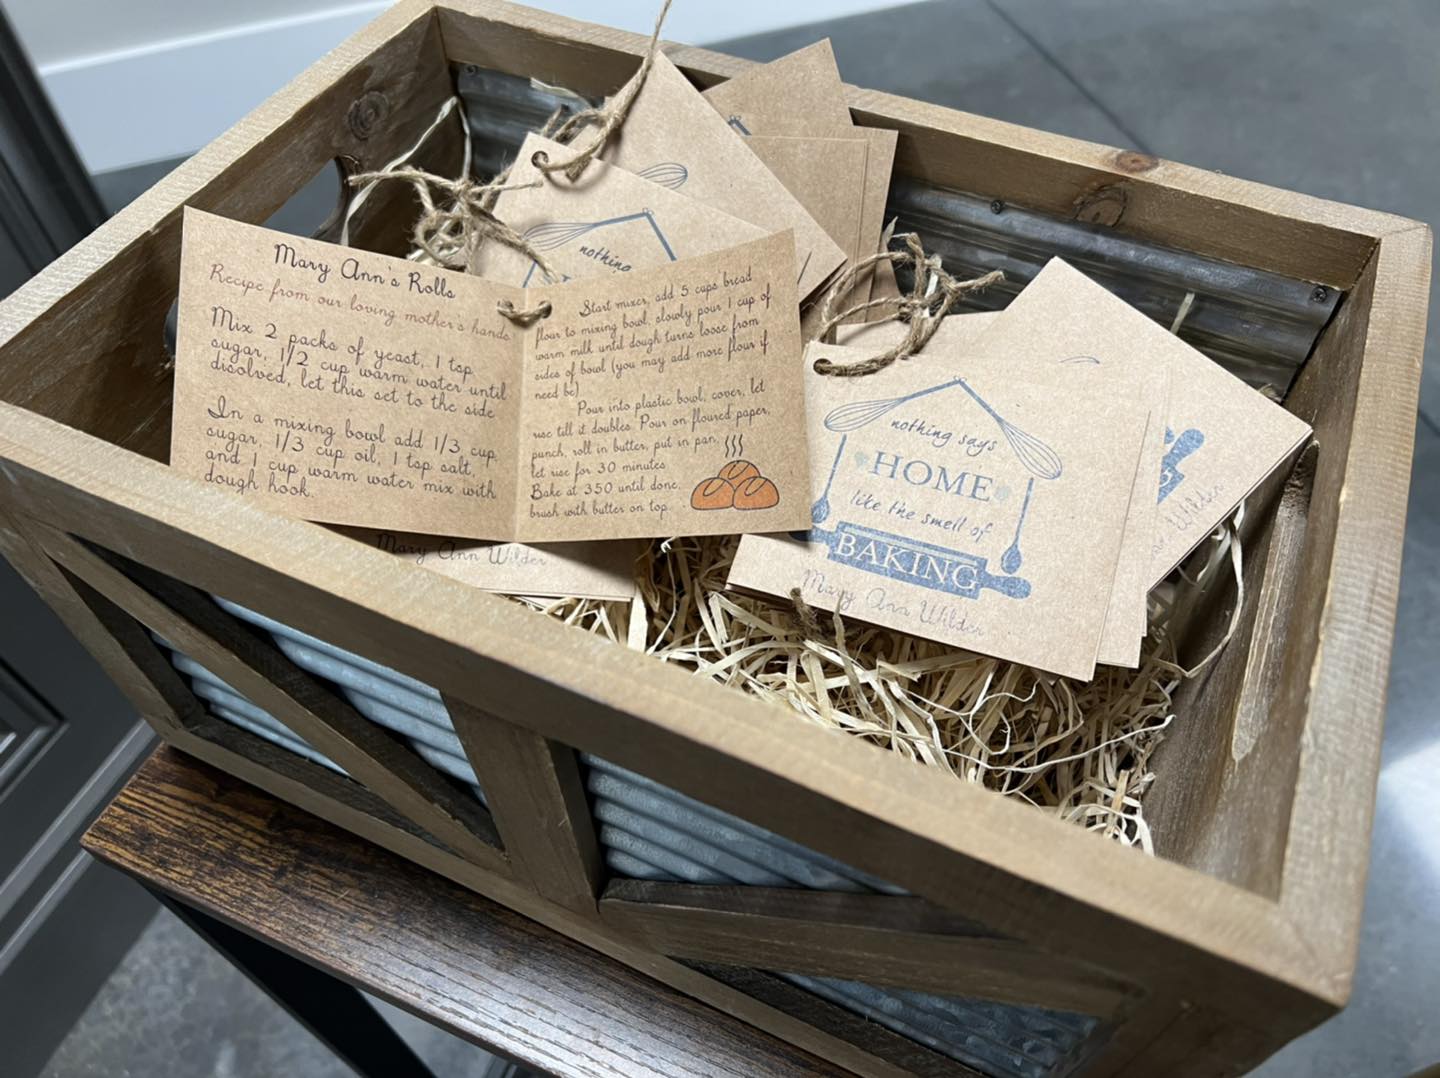 Mary Ann's Rolls
Recipe from our loving mother's hands
Mix 2 packs of yeast, 1 tsp
sugar, 1/2 cup warm water until
disolved, let this set to the side
In a mixing bowl add 1/3 cup
sugar, 1/3 cup oil, 1 tsp salt,
and 1 cup warm water mix with
dough hook.
Start mixer, add 5 cups bread
flour to mixing bowl, slowly pour 1 cup of
warm milk until dough turns loose from
sides of bowl (you may add more flour if
need be)
Pour into plastic bowl, cover, let
rise till it doubles. Pour on floured paper,
punch, roll in butter, put in pan,
let rise for 30 minutes.
Bake at 350 until done,
brush with butter on top.
Mary Ann Wilder
nothing
nothing says
HOME
like the smell of
BAKING
Mary Ann Wilder
Wilder